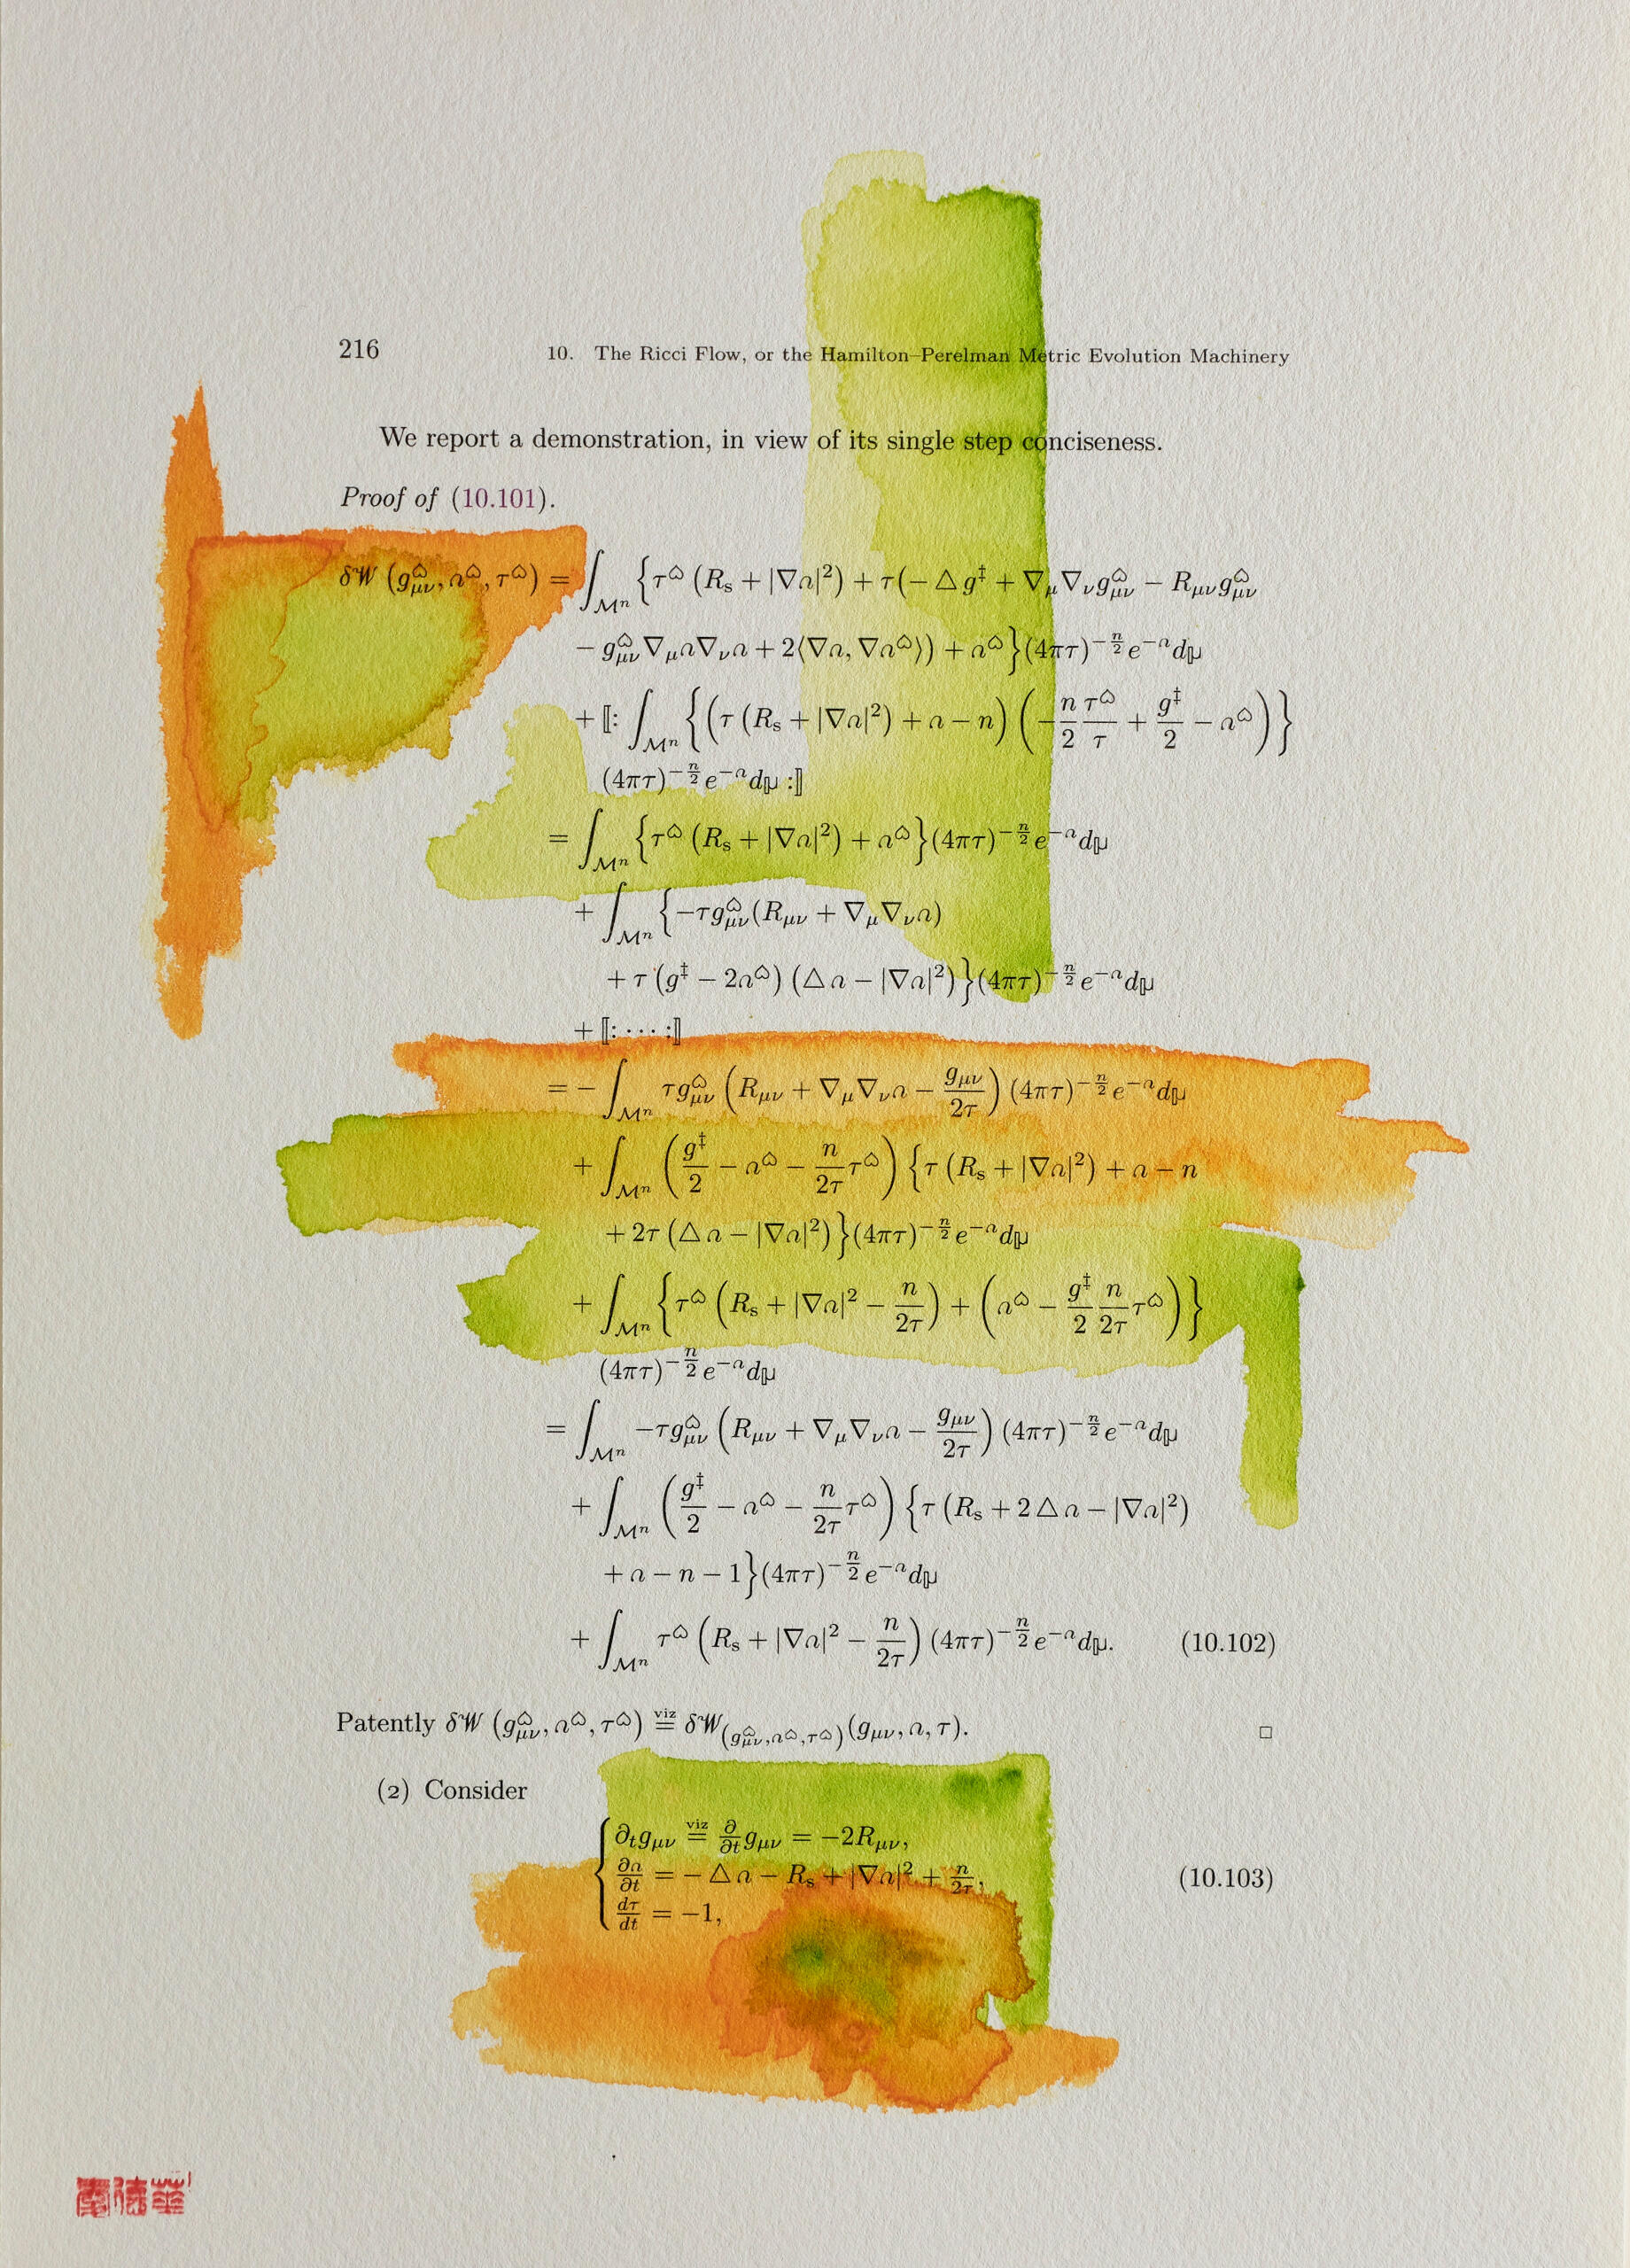 216 10. The Ricci Flow, or the Hamilton–Perelman Metric Evolution Machinery
We report a demonstration, in view of its single step conciseness.
Proof of (10.101).
δ𝒲 (g^♤_{μν}, 𝑎^♤, τ^♤) = ∫_{ℳⁿ} {τ^♤ (R_s + |∇𝑎|²) + τ(− △ g^‡ + ∇_μ∇_ν g^♤_{μν} − R_{μν} g^♤_{μν}
− g^♤_{μν} ∇_μ𝑎∇_ν𝑎 + 2⟨∇𝑎, ∇𝑎^♤⟩) + 𝑎^♤}(4πτ)^{−n/2} e^{−𝑎} dμ
+ ⟦: ∫_{ℳⁿ} {(τ (R_s + |∇𝑎|²) + 𝑎 − n) (−n/2 τ^♤/τ + g^‡/2 − 𝑎^♤)}
(4πτ)^{−n/2} e^{−𝑎} dμ :⟧
= ∫_{ℳⁿ} {τ^♤ (R_s + |∇𝑎|²) + 𝑎^♤}(4πτ)^{−n/2} e^{−𝑎} dμ
+ ∫_{ℳⁿ} {−τg^♤_{μν}(R_{μν} + ∇_μ∇_ν𝑎)
+ τ (g^‡ − 2𝑎^♤) (△ 𝑎 − |∇𝑎|²)}(4πτ)^{−n/2} e^{−𝑎} dμ
+ ⟦: · · · :⟧
= − ∫_{ℳⁿ} τg^♤_{μν} (R_{μν} + ∇_μ∇_ν𝑎 − g_{μν}/2τ) (4πτ)^{−n/2} e^{−𝑎} dμ
+ ∫_{ℳⁿ} (g^‡/2 − 𝑎^♤ − n/2τ τ^♤) {τ (R_s + |∇𝑎|²) + 𝑎 − n
+ 2τ (△ 𝑎 − |∇𝑎|²)}(4πτ)^{−n/2} e^{−𝑎} dμ
+ ∫_{ℳⁿ} {τ^♤ (R_s + |∇𝑎|² − n/2τ) + (𝑎^♤ − g^‡/2 n/2τ τ^♤)}
(4πτ)^{−n/2} e^{−𝑎} dμ
= ∫_{ℳⁿ} −τg^♤_{μν} (R_{μν} + ∇_μ∇_ν𝑎 − g_{μν}/2τ) (4πτ)^{−n/2} e^{−𝑎} dμ
+ ∫_{ℳⁿ} (g^‡/2 − 𝑎^♤ − n/2τ τ^♤) {τ (R_s + 2 △ 𝑎 − |∇𝑎|²)
+ 𝑎 − n − 1}(4πτ)^{−n/2} e^{−𝑎} dμ
+ ∫_{ℳⁿ} τ^♤ (R_s + |∇𝑎|² − n/2τ) (4πτ)^{−n/2} e^{−𝑎} dμ. (10.102)
Patently δ𝒲 (g^♤_{μν}, 𝑎^♤, τ^♤) ≝(viz) δ𝒲_{(g^♤_{μν}, 𝑎^♤, τ^♤)}(g_{μν}, 𝑎, τ). □
(2) Consider
∂_t g_{μν} =(viz) ∂/∂t g_{μν} = −2R_{μν},
∂𝑎/∂t = − △ 𝑎 − R_s + |∇𝑎|² + n/2τ, (10.103)
dτ/dt = −1,